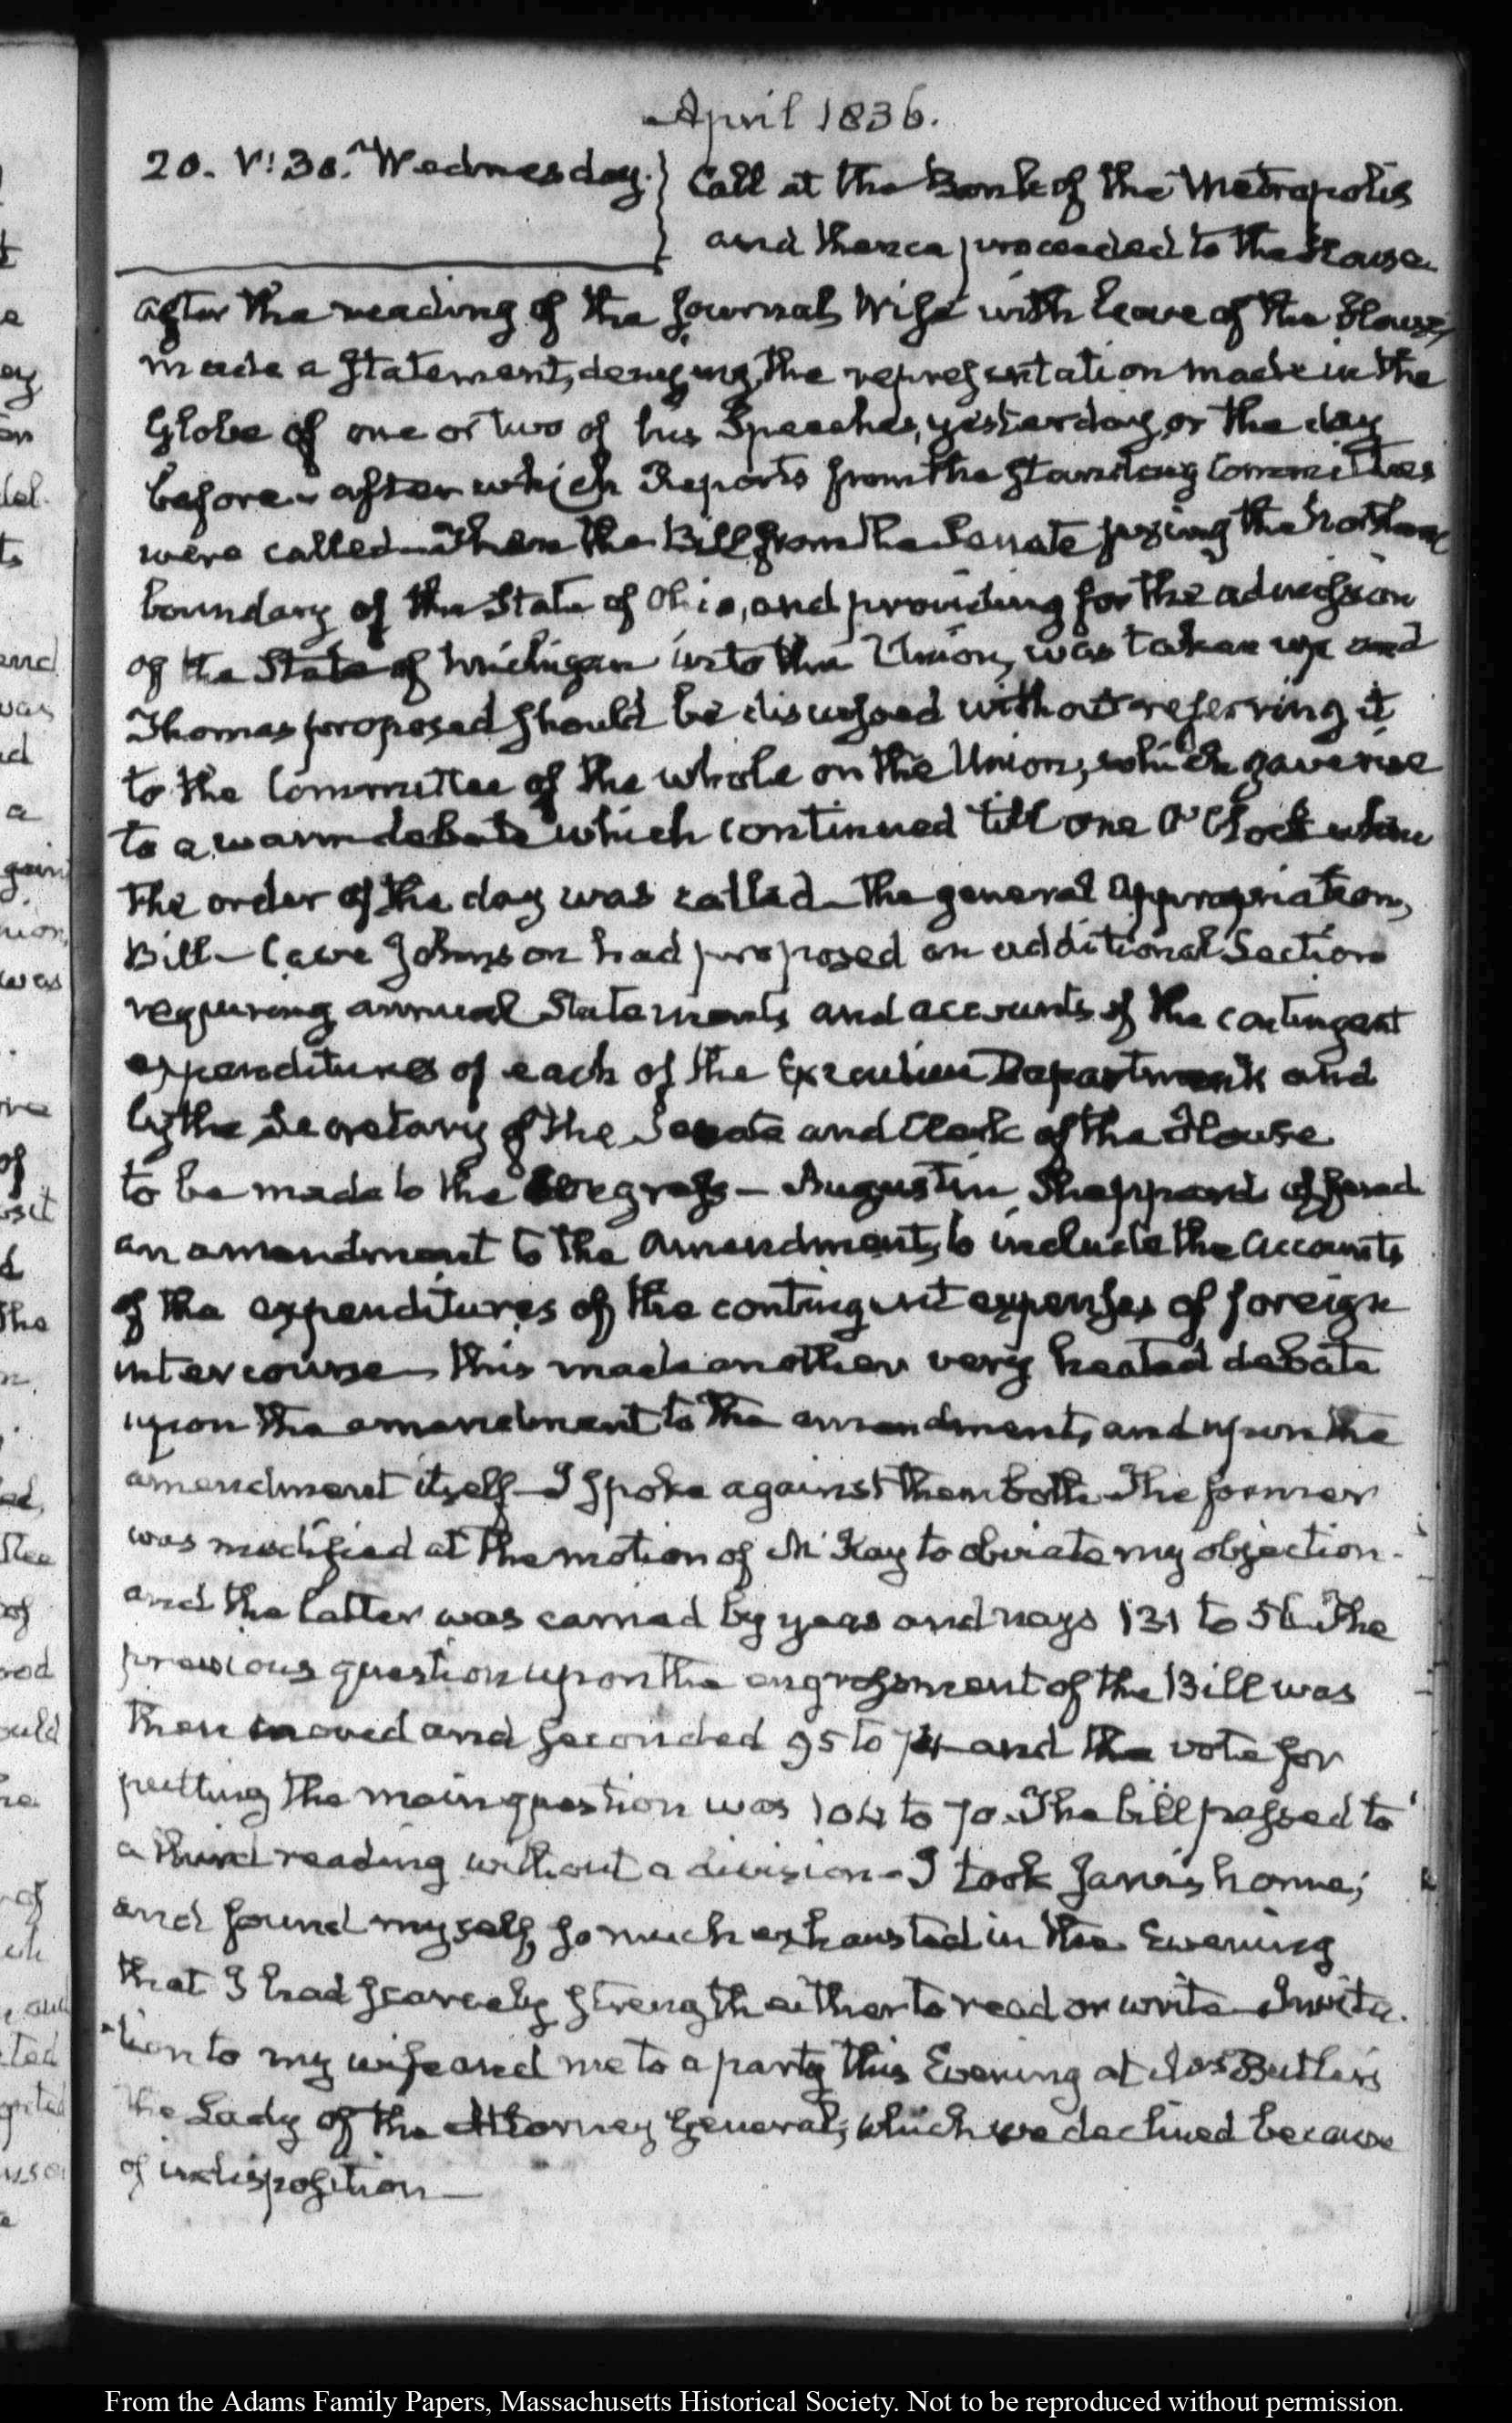 April 1836.
20. V:30. Wednesday. } Call at the Bank of the Metropolis
and thence proceeded to the House.
after the reading of the Journal, Wise with leave of the House,
made a Statement, denying the representation made in the
Globe of one or two of his Speeches, yesterday, or the day
before - after which Reports from the Standing Committees
were called - Then the Bill from the Senate fixing the Northern
boundary of the State of Ohio, and providing for the admission
of the State of Michigan into the Union, was taken up and
Thomas proposed should be discussed without referring it
to the Committee of the whole on the Union, which gave rise
to a warm debate which continued till one O'Clock when
the order of the day was called - the general Appropriation,
Bill - Cave Johnson had proposed an additional Section
requiring annual Statements and accounts of the contingent
expenditures of each of the Executive Departments and
by the Secretary of the Senate and Clerk of the House
to be made to the Congress - Augustin Sheppard offered
an amendment to the Amendment, to include the accounts
of the expenditures of the contingent expenses of foreign
intercourse - this made another very heated debate
upon the amendment to the amendment, and upon the
amendment itself - I spoke against them both. The former
was modified at the motion of McKay to obviate my objection -
and the latter was carried by yeas and nays 131 to 56. The
previous question upon the engrossment of the Bill was
then moved and seconded 95 to 74 and the vote for
putting the main question was 104 to 70. The bill passed to
a third reading without a division - I took Janvis home;
and found myself so much exhausted in the Evening
that I had scarcely strength either to read or write - Invita-
-tion to my wife and me to a party this Evening at Mrs Butler's
the Lady of the Attorney General; which we declined because
of indisposition -
From the Adams Family Papers, Massachusetts Historical Society. Not to be reproduced without permission.